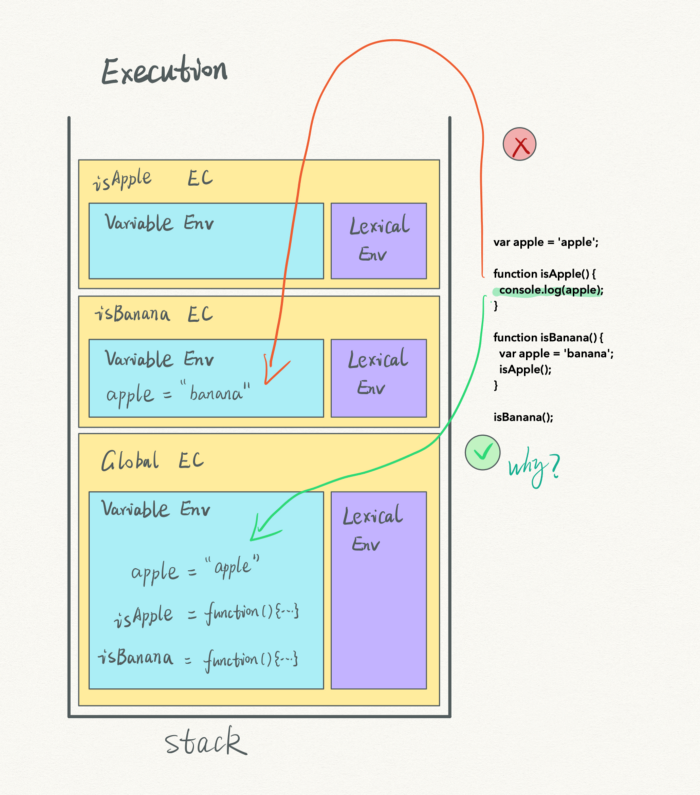 Execution
isApple EC
Variable Env
Lexical
Env
isBanana EC
Variable Env
apple = "banana"
Lexical
Env
Global EC
Variable Env
apple = "apple"
isApple = function(){...}
isBanana = function(){...}
Lexical
Env
stack
X
var apple = 'apple';
function isApple() {
console.log(apple);
}
function isBanana() {
var apple = 'banana';
isApple();
}
isBanana();
why?